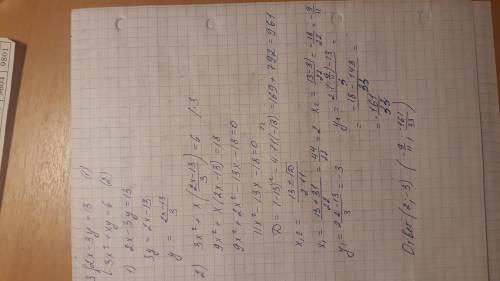 3{2x-3y=13 (1)
{3x²+xy=6 (2)
1) 2x-3y=13
3y=2x-13
y = 2x-13/3
2) 3x²+x(2x-13/3)=6 |·3
9x²+x(2x-13)=18
9x²+2x²-13x-18=0
11x²-13x-18=0
D=(-13)²-4·11·(-18)=169+792=961
x₁,₂ = 13±√D/2·11
x₁ = 13+31/22 = 44/22 = 2 x₂ = 13-31/22 = -18/22 = -9/11
y₁ = 2·2-13/3 = -3 y₂ = 2·(-9/11)-13/3 =
= -18-143/33 =
= -161/33
Ответ (2; -3) (-9/11; -161/33)
9801